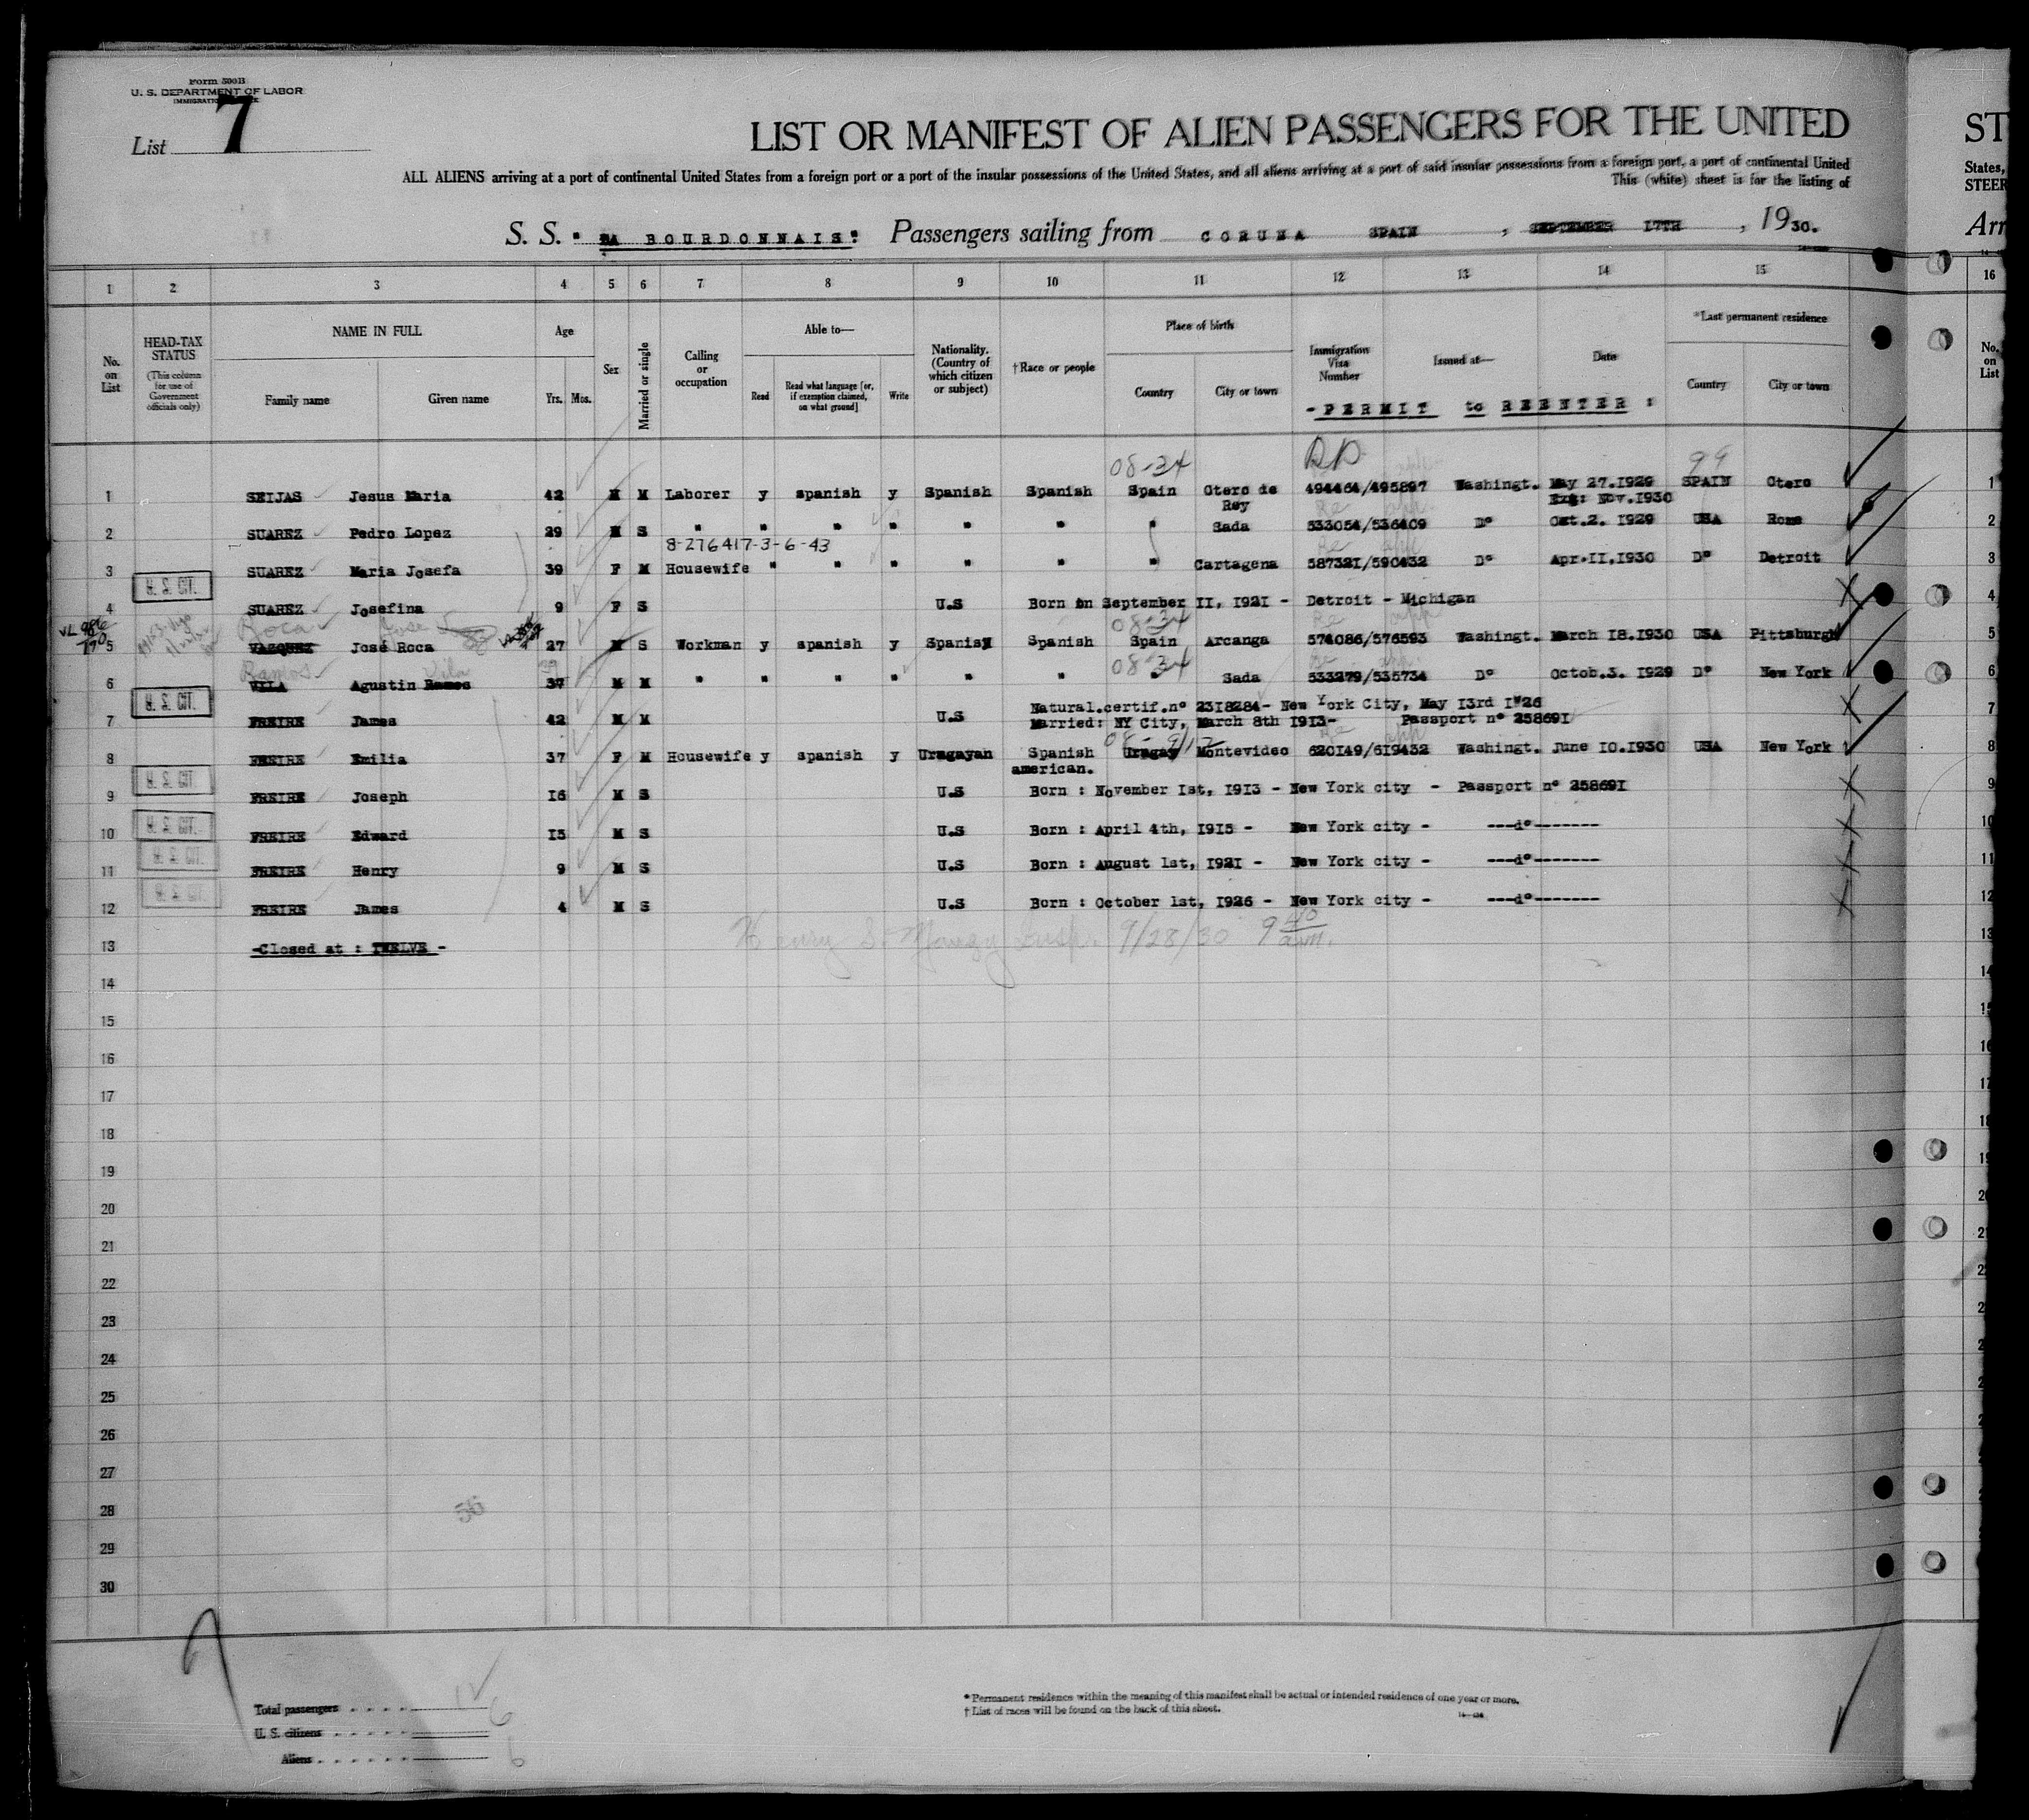 Form 500B
U. S. DEPARTMENT OF LABOR
List 7
LIST OR MANIFEST OF ALIEN PASSENGERS FOR THE UNITED ST
ALL ALIENS arriving at a port of continental United States from a foreign port or a port of the insular possessions of the United States, and all aliens arriving at a port of said insular possessions from a foreign port, a port of continental United States,
This (white) sheet is for the listing of STEER
S. S. " LA BOURDONNAIS" Passengers sailing from CORUNA SPAIN , SEPTEMBER 17TH , 1930. Arr
1 2 3 4 5 6 7 8 9 10 11 12 13 14 15 16
No. on List
HEAD-TAX STATUS
(This column for use of Government officials only)
NAME IN FULL
Family name Given name
Age
Yrs. Mos.
Sex
Married or single
Calling or occupation
Able to—
Read Read what language [or, if exemption claimed, on what ground] Write
Nationality. (Country of which citizen or subject)
†Race or people
Place of birth
Country City or town
Immigration Visa Number
Issued at—
Date
*Last permanent residence
Country City or town
No. on List
- PERMIT to REENTER :
08-34 99
1 SEIJAS Jesus Maria 42 M M Laborer y spanish y Spanish Spanish Spain Otero de Rey 494464/495897 Washingt. May 27.1929 SPAIN Otero 1
Nov.1930
2 SUAREZ Pedro Lopez 29 M S " " " " " " " Sada 533054/536409 D° Oct.2. 1929 USA Rome 2
8-276417-3-6-43
3 SUAREZ Maria Josefa 39 F M Housewife " " " " " " Cartagena 587321/590432 D° Apr.II.1930 D° Detroit 3
U. S. CIT.
4 SUAREZ Josefina 9 F S U.S Born on September II, 1921 - Detroit - Michigan 4
Roca Jose 08-34
5 VAZQUEZ José Roca 27 M S Workman y spanish y Spanish Spanish Spain Arcanga 574086/576593 Washingt. March 18.1930 USA Pittsburgh 5
Ramos Vila 08-34
6 VILA Agustin Ramos 37 M M " " " " " " " Sada 533279/535734 D° Octob.3. 1929 D° New York 6
U. S. CIT.
7 FREIRE James 42 M M U.S Natural.certif.n° 2318284- New York City, May 13rd I"26 7
Married: NY City, March 8th 1913- Passport n° 258691
8 FREIRE Emilia 37 F M Housewife y spanish y Uragayan Spanish american. Uragay Montevideo 620149/619432 Washingt. June 10.1930 USA New York 8
U. S. CIT.
9 FREIRE Joseph 16 M S U.S Born : November 1st, 1913 - New York city - Passport n° 258691 9
U. S. CIT.
10 FREIRE Edward 15 M S U.S Born : April 4th, 1915 - New York city - ---d°------- 10
U. S. CIT.
11 FREIRE Henry 9 M S U.S Born : August 1st, 1921 - New York city - ---d°------- 11
U. S. CIT.
12 FREIRE James 4 M S U.S Born : October 1st, 1926 - New York city - ---d°------- 12
13 -Closed at : TWELVE - 9/28/30 13
14
15
16
17
18
19
20
21
22
23
24
25
26
27
28
29
30
56
Total passengers
U. S. citizens 6
Aliens 6
* Permanent residence within the meaning of this manifest shall be actual or intended residence of one year or more.
† List of races will be found on the back of this sheet.